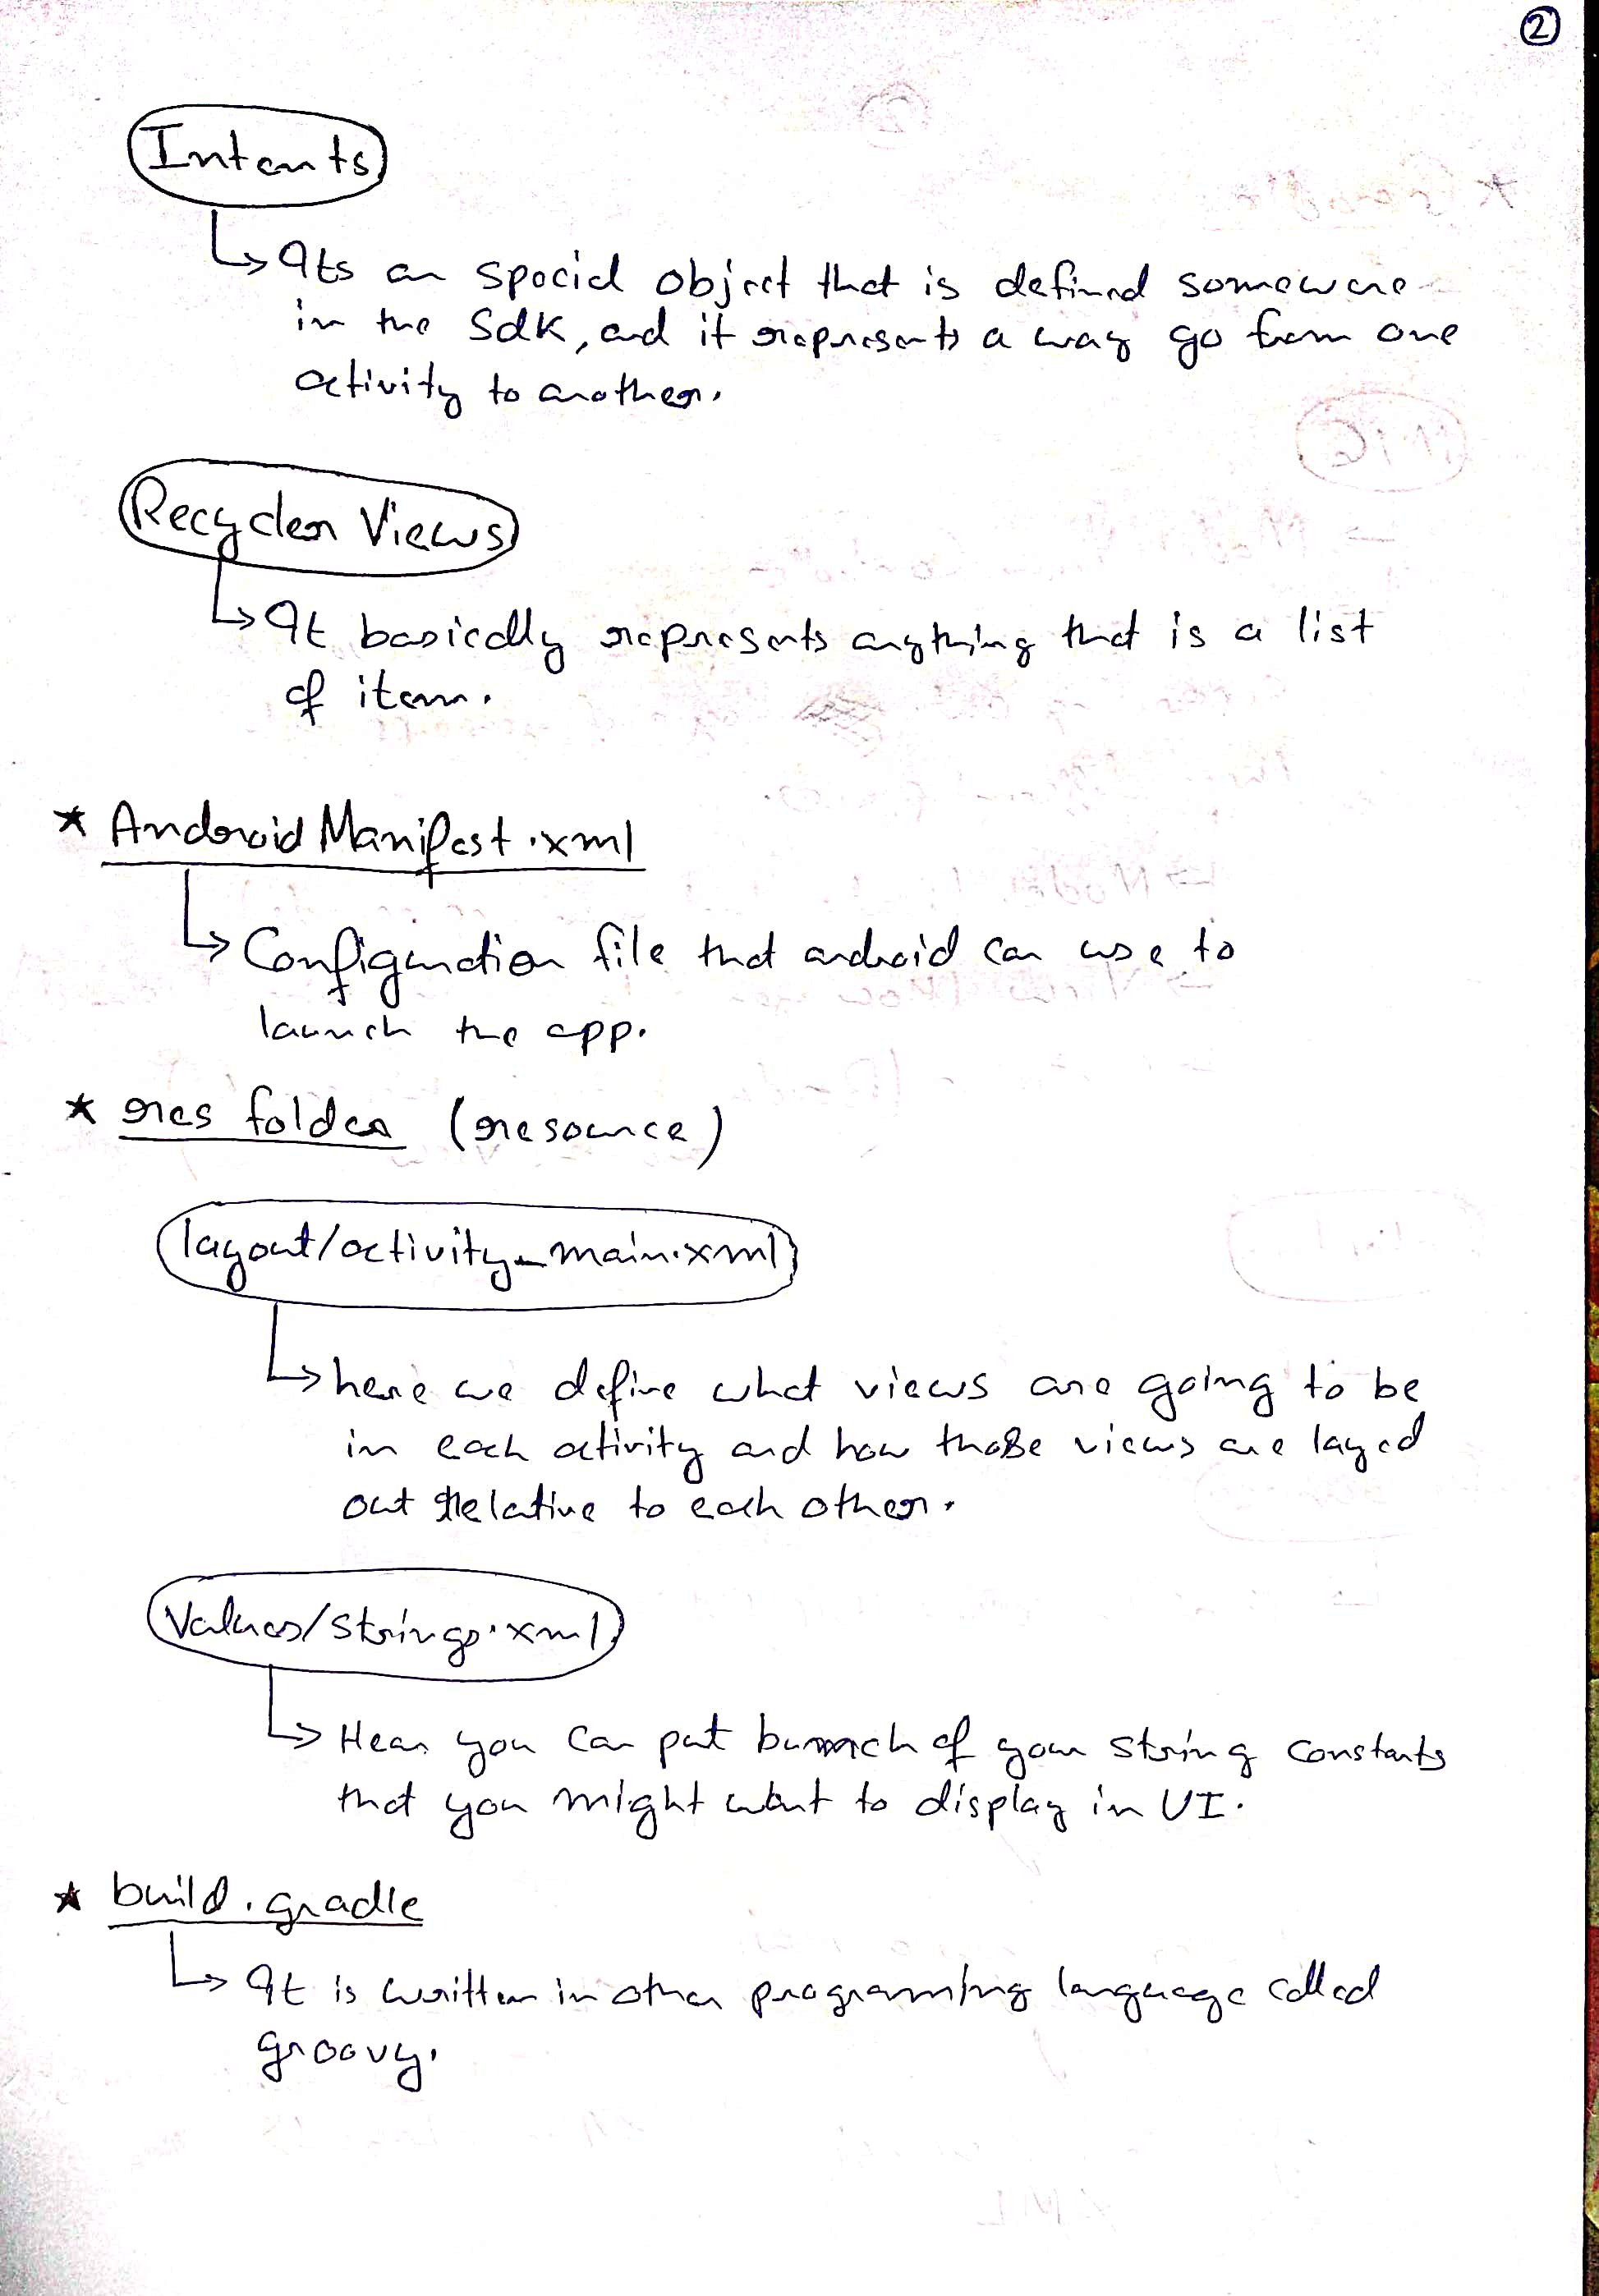 2
Intents
Its an special object that is defined somewere
in the Sdk, and it represents a way go from one
activity to another.
Recycler Views
It basically represents anything that is a list
of item.
* Android Manifest.xml
Configuration file that android can use to
launch the app.
* res folder (resource)
layout/activity_main.xml
here we define what views are going to be
in each activity and how those views are layed
out Relative to each other.
Values/strings.xml
Hear you can put bunch of your string constants
that you might want to display in UI.
* build.gradle
It is written in other programing language called
groovy.